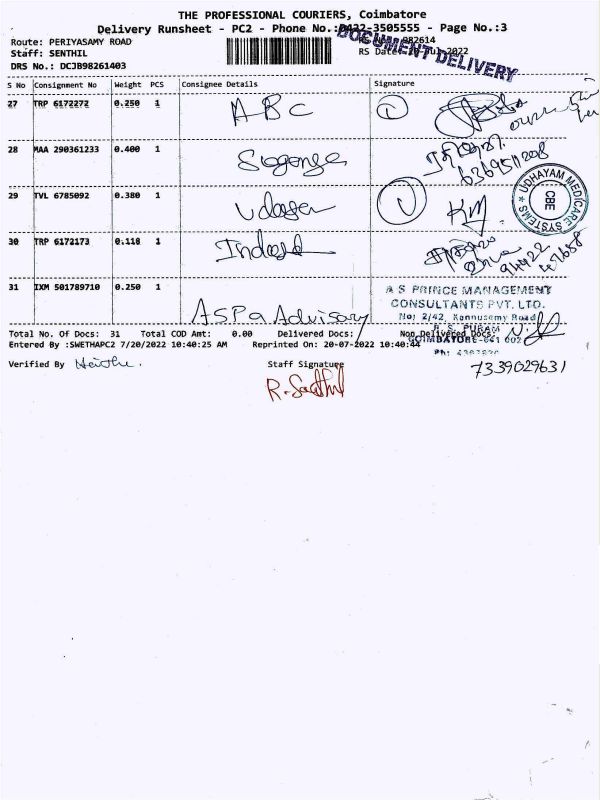 THE PROFESSIONAL COURIERS, Coimbatore
Delivery Runsheet - PC2 - Phone No.:0422-3505555 - Page No.:3
DOCUMENT DELIVERY
Route: PERIYASAMY ROAD
982614
Staff: SENTHIL
RS Date: 20-Jul-2022
DRS No.: DCJB98261403
S No Consignment No Weight PCS Consignee Details Signature
27 TRP 6172272 0.250 1 ABC 1
28 MAA 290361233 0.400 1
6369511208
29 TVL 6785092 0.380 1
UDHAYAM MEDICARE SYSTEMS
CBE
30 TRP 6172173 0.110 1
31 IXM 501789710 0.250 1 ASPa Advisory
A S PRINCE MANAGEMENT
CONSULTANTS PVT. LTD.
No: 2/42, Kannusamy Road
R. S. PURAM
COIMBATORE-641 002
Total No. Of Docs: 31 Total COD Amt: 0.00 Delivered Docs: Non Delivered Docs:
Entered By :SWETHAPC2 7/20/2022 10:40:25 AM Reprinted On: 20-07-2022 10:40:44
Verified By
Staff Signature
7339029631
R. Senthil